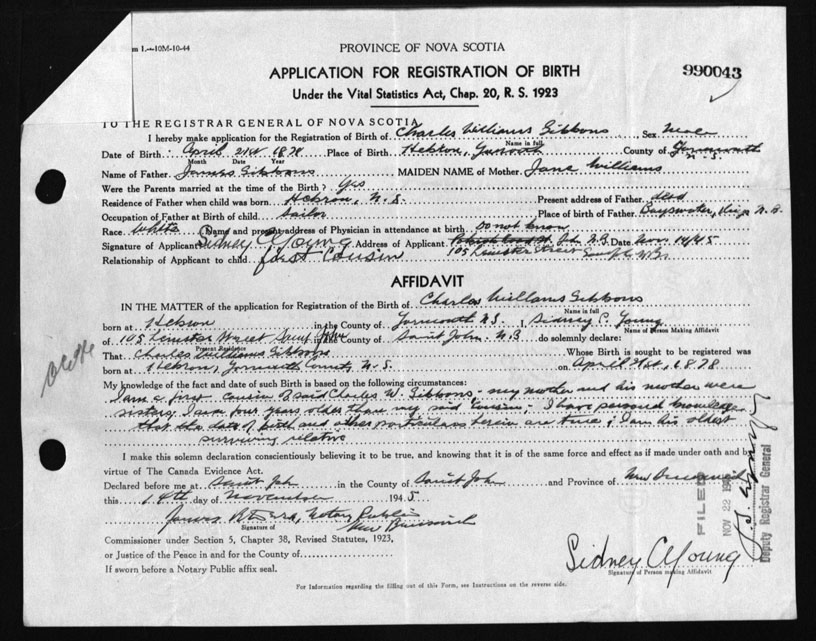 m 1.—10M-10-44
PROVINCE OF NOVA SCOTIA
APPLICATION FOR REGISTRATION OF BIRTH
990043
Under the Vital Statistics Act, Chap. 20, R. S. 1923
TO THE REGISTRAR GENERAL OF NOVA SCOTIA
I hereby make application for the Registration of Birth of Charles Williams Gibbons Sex Male
Name in full
Date of Birth April 21st 1878 Place of Birth Hebron, Yarmouth County of Yarmouth N.S.
Month Date Year
Name of Father James Gibbons MAIDEN NAME of Mother Jane Williams
Were the Parents married at the time of the Birth? Yes
Residence of Father when child was born Hebron, N.S. Present address of Father dead
Occupation of Father at Birth of child sailor Place of birth of Father Bayswater, N.B.
Race White Name and present address of Physician in attendance at birth do not know
Signature of Applicant Sidney C Young Address of Applicant St. John N.B. Date Nov. 14/45
Relationship of Applicant to child first cousin 105 Leinster Street
AFFIDAVIT
IN THE MATTER of the application for Registration of the Birth of Charles Williams Gibbons
Name in full
born at Hebron in the County of Yarmouth N.S. I Sidney C. Young
Name of Person Making Affidavit
of 105 Leinster Street Saint John in the County of Saint John N.B. do solemnly declare:
Present Residence
That Charles Williams Gibbons Whose Birth is sought to be registered was
born at Hebron, Yarmouth County N.S. on April 21st, 1878
My knowledge of the fact and date of such Birth is based on the following circumstances:
I am a first cousin of said Charles W. Gibbons - my mother and his mother were
sisters. I am four years older than my said cousin; I have personal knowledge
that the date of birth and other particulars herein are true; I am his oldest
surviving relative
I make this solemn declaration conscientiously believing it to be true, and knowing that it is of the same force and effect as if made under oath and by
virtue of The Canada Evidence Act.
Declared before me at Saint John in the County of Saint John and Province of New Brunswick
this 14th day of November 1945
Notary Public
New Brunswick
Signature of
Commissioner under Section 5, Chapter 38, Revised Statutes, 1923,
or Justice of the Peace in and for the County of
If sworn before a Notary Public affix seal.
Sidney C Young
Signature of Person making Affidavit
For Information regarding the filling out of this Form, see Instructions on the reverse side.
FILED
NOV 22
Deputy Registrar General